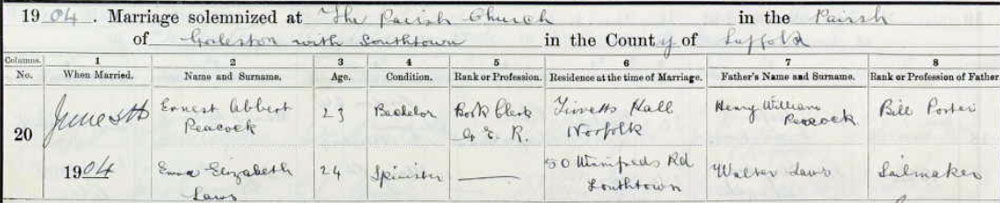 1904. Marriage solemnized at The Parish Church in the Parish
of Gorleston with Southtown in the County of Suffolk
Columns. 1 2 3 4 5 6 7 8
No. When Married. Name and Surname. Age. Condition. Rank or Profession. Residence at the time of Marriage. Father's Name and Surname. Rank or Profession of Father
June 5th Ernest Albert 23 Bachelor Clerk Hall Henry William Porter
20 Peacock G. E. R. Norfolk Peacock
1904 Emma Elizabeth 24 Spinster 50 Winifreds Rd Walter Laws Sailmaker
Laws Southtown